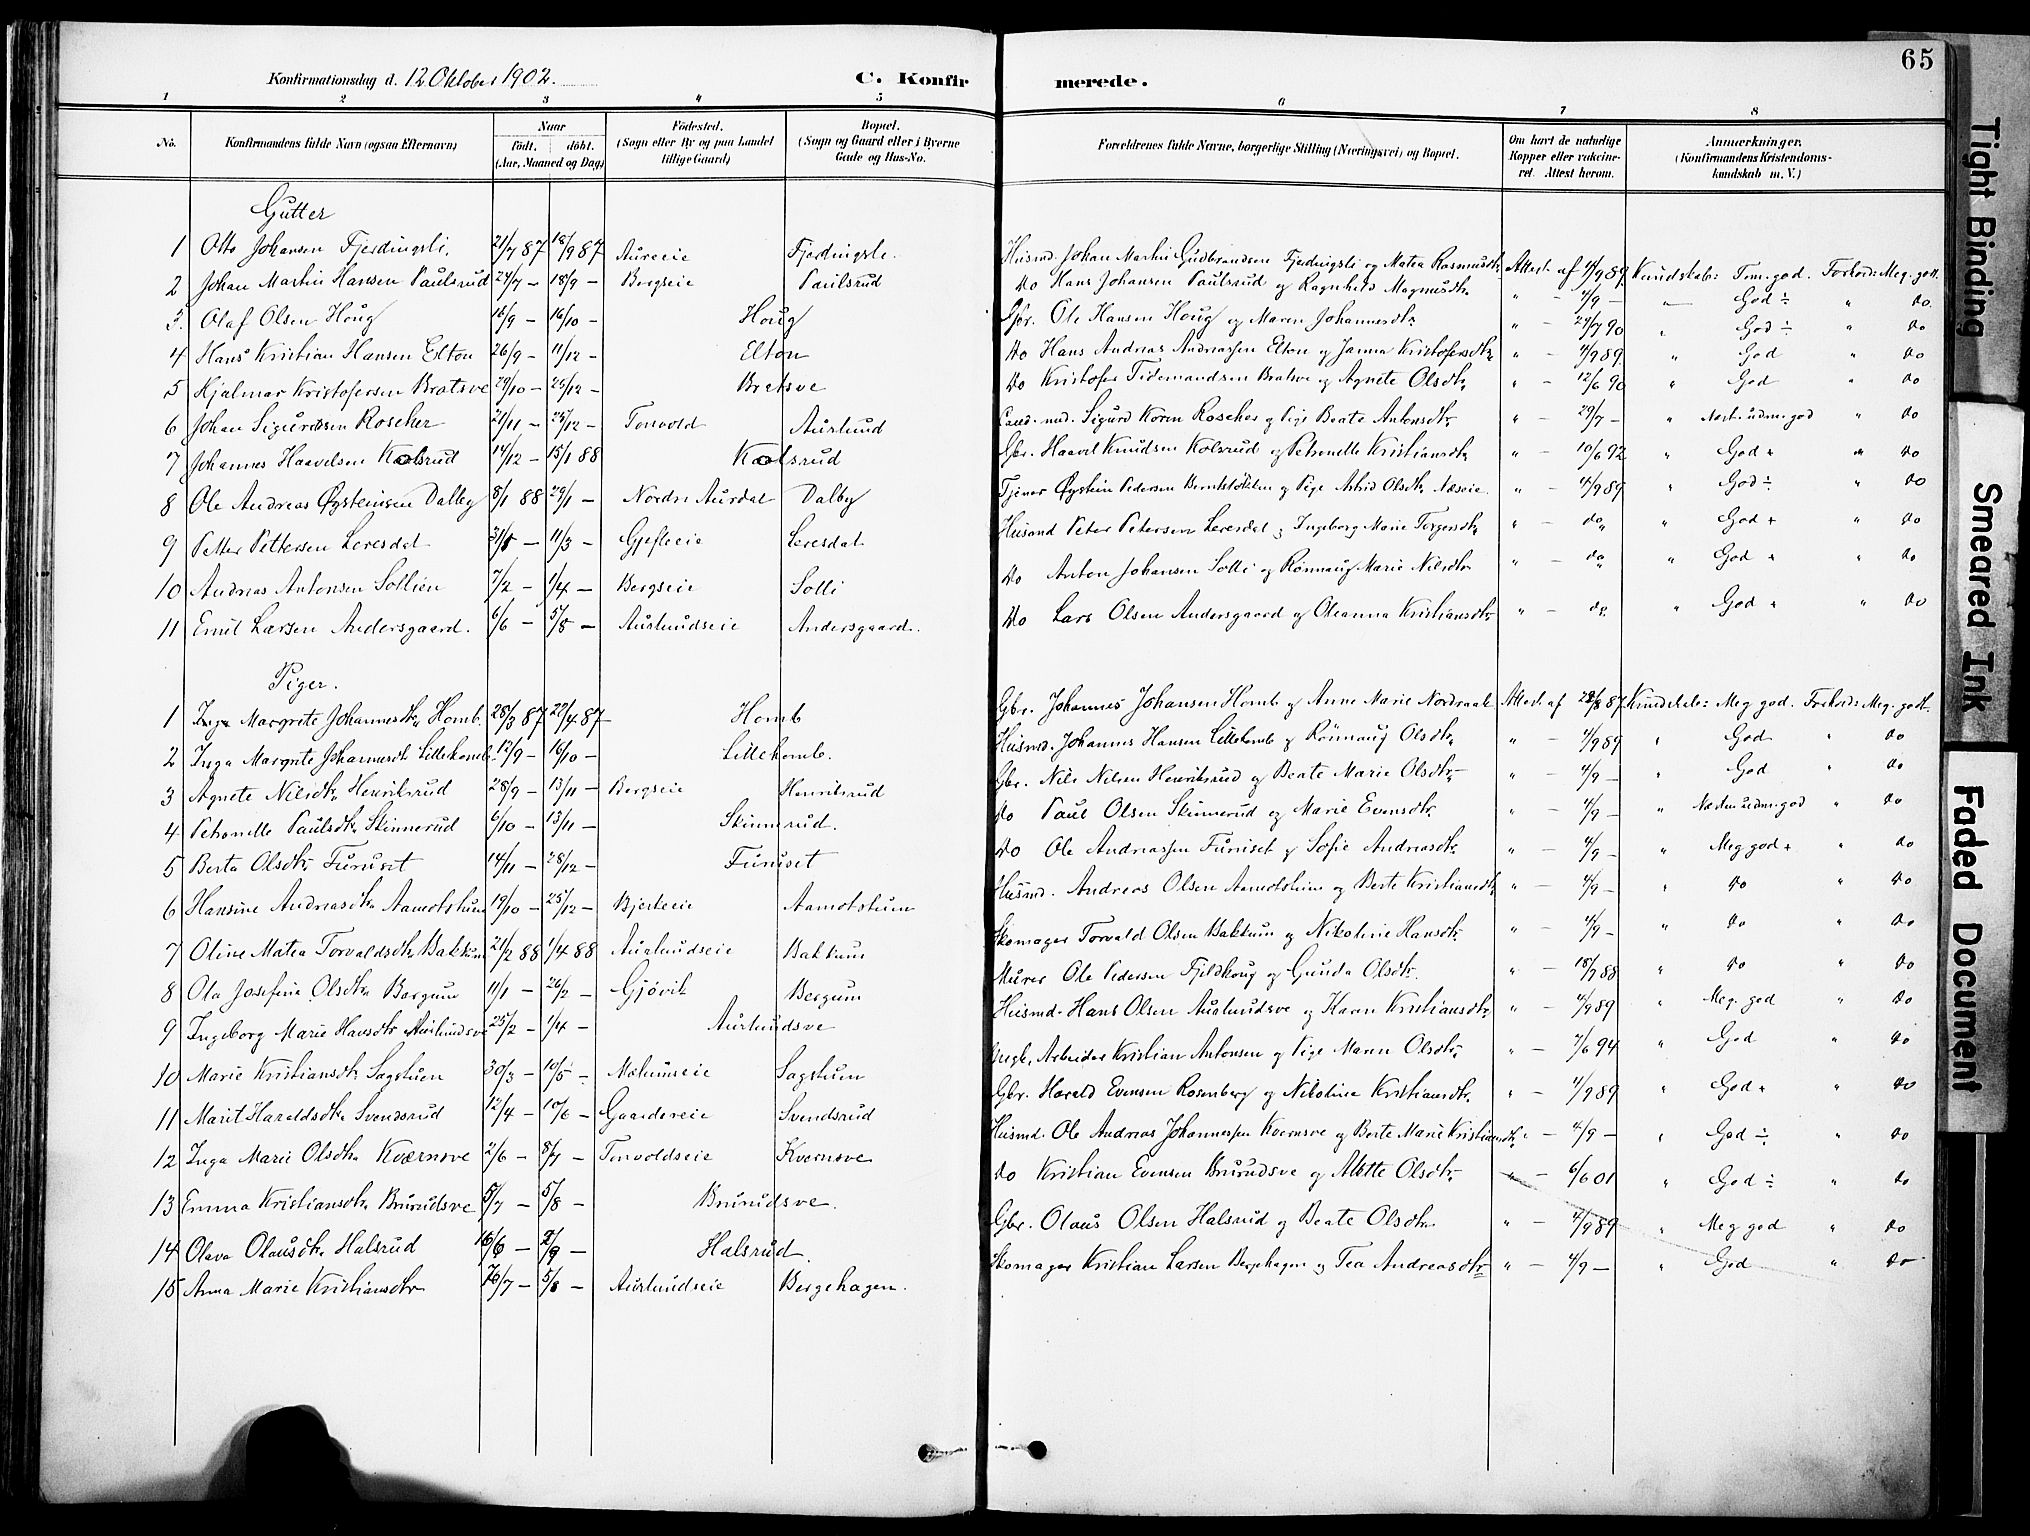 Konfirmationsdag d. 12 Oktober 1902. C. Konfirmerede. 65
1 2 3 4 5 6 7 8
No. Konfirmandens fulde Navn (ogsaa Efternavn) Naar født. døbt. (Aar, Maaned og Dag) Fødested. (Sogn eller By og paa Landet tillige Gaard) Bopæl. (Sogn og Gaard eller i Byerne Gade og Hus-No. Forældrenes fulde Navne, borgerlige Stilling (Næringsvei) og Bopæl. Om havt de naturlige Kopper eller vakcineret. Attest herom. Anmærkninger. (Konfirmandens Kristendomskundskab m. V.)
Gutter
1 Otto Johansen Fjerdingsli. 21/7 87 18/9 87 Aureeie Fjerdingsli. Husmd. Johan Martin Gudbrandsen Fjerdingsli og Matea Rasmusdtr. Attest af 4/9 89 Kundskab: Tem. god. Forhold: Meg. godt.
2 Johan Martin Hansen Paulsrud 24/7 - 18/9 - Bergseie Paulsrud Do Hans Johansen Paulsrud og Ragnhild Magnusdtr. " - 4/9 - God ÷ " Do.
3. Olaf Olsen Houg 16/9 - 16/10 - Houg Gbr. Ole Hansen Houg og Maren Johannesdtr. " - 29/7 90 " God ÷ " Do
4 Hans Kristian Hansen Elton 26/9 - 11/12 - Elton Do Hans Andreas Andreassen Elton og Janna Kristofersdtr. " - 4/9 89 " God " Do
5 Hjalmar Kristofersen Bratsve 29/10 - 25/12 - Bratsve Do Kristofer Tidemandsen Bratsve og Agnete Olsdtr. " - 12/6 90 " God " Do
6 Johan Sigurdsen Roscher 21/11 - 25/12 - Torsvold Auslund Cand. med. Sigurd Koren Roscher og Pige Beate Antonsdtr. " - 29/7 - " Næst. udm. god " Do
7 Johannes Haavelsen Kolsrud 14/12 - 15/1 88 Kolsrud Gbr. Haavel Knudsen Kolsrud og Petronelle Kristiansdtr. " - 10/6 92 " God + " Do
8 Ole Andreas Øysteinsen Dalby 8/1 88 29/1 - Nordre Aurdal Dalby Tjener Øystein Pedersen og Pige Astrid Olsdtr. Næseie. " - 4/9 89 " God ÷ " Do
9 Petter Pettersen Leresdal 31/1 - 11/3 - Gjefleeie Leresdal Husmd Peter Petersen Leresdal og Ingeborg Marie Torgersdtr. " - do " God + " Do
10 Andreas Antonsen Sollien 7/2 - 1/4 - Bergseie Solli Do Anton Johansen Solli og Rønnaug Marie Nilsdtr " - do " God + " Do
11 Emil Larsen Andersgaard. 6/6 - 5/8 - Auslundseie Andersgaard. Do Lars Olsen Andersgaard og Oleanna Kristiansdtr. " - do. " God + " Do
Piger.
1 Inga Margrete Johannesdtr. Homb. 28/3 87 22/4 87 Homb Gbr. Johannes Johansen Homb og Anne Marie Nordraak Attest af 87 Kundskab: Meg god. Forhold: Meg. godt.
2 Inga Margrete Johannesdtr Lillehomb 12/9 - 16/10 - Lillehomb. Husmd. Johannes Hansen Lillehomb og Rønnaug Olsdtr. " - 4/9 89 " God " Do
3 Agnete Nilsdtr. Henriksrud 28/9 - 13/11 - Bergseie Henriksrud Gbr. Nils Nilsen Henriksrud og Beate Marie Olsdtr. " - 4/9 - " God " Do
4 Petronelle Paulsdtr. Skinnerud 6/10 - 13/11 - Skinnerud. Do Paul Olsen Skinnerud og Marie Evensdtr. " - 4/9 - " Næsten udm. god " Do
5 Berta Olsdtr. Furuset 14/11 - 28/12 - Furuset Do Ole Andreassen Furuset og Sofie Andreasdtr. " - 4/9 - " Meg god + " Do
6 Hansine Andreasdtr. Aamotstuen 19/10 - 25/12 - Bjerkeeie Aamotstuen Husmd. Andreas Olsen Aamotstuen og Berte Kristiansdtr. " - 4/9 - " Do " Do
7 Oline Matea Torvaldsdtr. Bakkum 21/2 88 1/4 88 Auslundseie Bakkum Skomager Torvald Olsen Bakkum og Nikoline Hansdtr. " - 4/9 - " Do " Do
8 Ola Josefine Olsdtr. Bergum 11/1 - 26/2 - Gjøvik Bergum Murer Ole Pedersen Fjeldhoug og Gunda Olsdtr. " - 18/7 88 " Do " Do
9 Ingeborg Marie Hansdtr Auslundsve 25/2 - 1/4 - Auslundsve Husmd. Hans Olsen Auslundsve og Karen Kristiansdtr. " - 4/9 89 " Meg. god " Do
10 Marie Kristiansdtr. Sagstuen 30/3 - 10/5 - Mælumseie Sagstuen Ungk. Arbeider Kristian Antonsen og Pige Maren Olsdtr. " - 7/6 94 " God " Do
11 Marit Haraldsdtr. Svendsrud 12/4 - 10/6 - Gaardereie Svendsrud Gbr. Harald Evensen Rosenberg og Nikoline Kristiansdtr. " - 4/9 89 " God + " Do
12 Inga Marie Olsdtr. Kværnsve 2/6 - 8/7 - Torsvoldseie Kværnsve Husmd. Ole Andreas Johannessen Kværnsve og Berte Marie Kristiansdtr. " - 4/9 - " God ÷ " Do
13 Emma Kristiansdtr. Brurudsve 5/7 - 5/8 - Brurudsve. Do Kristian Evensen Brurudsve og Mette Olsdtr. " - 6/6 01 " God ÷ " Do
14 Olava Olausdtr. Halsrud 16/6 - 2/9 - Halsrud. Gbr. Olaus Olsen Halsrud og Beate Olsdtr. " - 4/9 89 " Meg god " Do
15 Anna Marie Kristiansdtr 5/8 - Auslundseie Bergehagen. Skomager Kristian Larsen Bergehagen og Tea Andreasdtr. " - 4/9 - " God " Do
Tight Binding
Smeared Ink
Faded Document